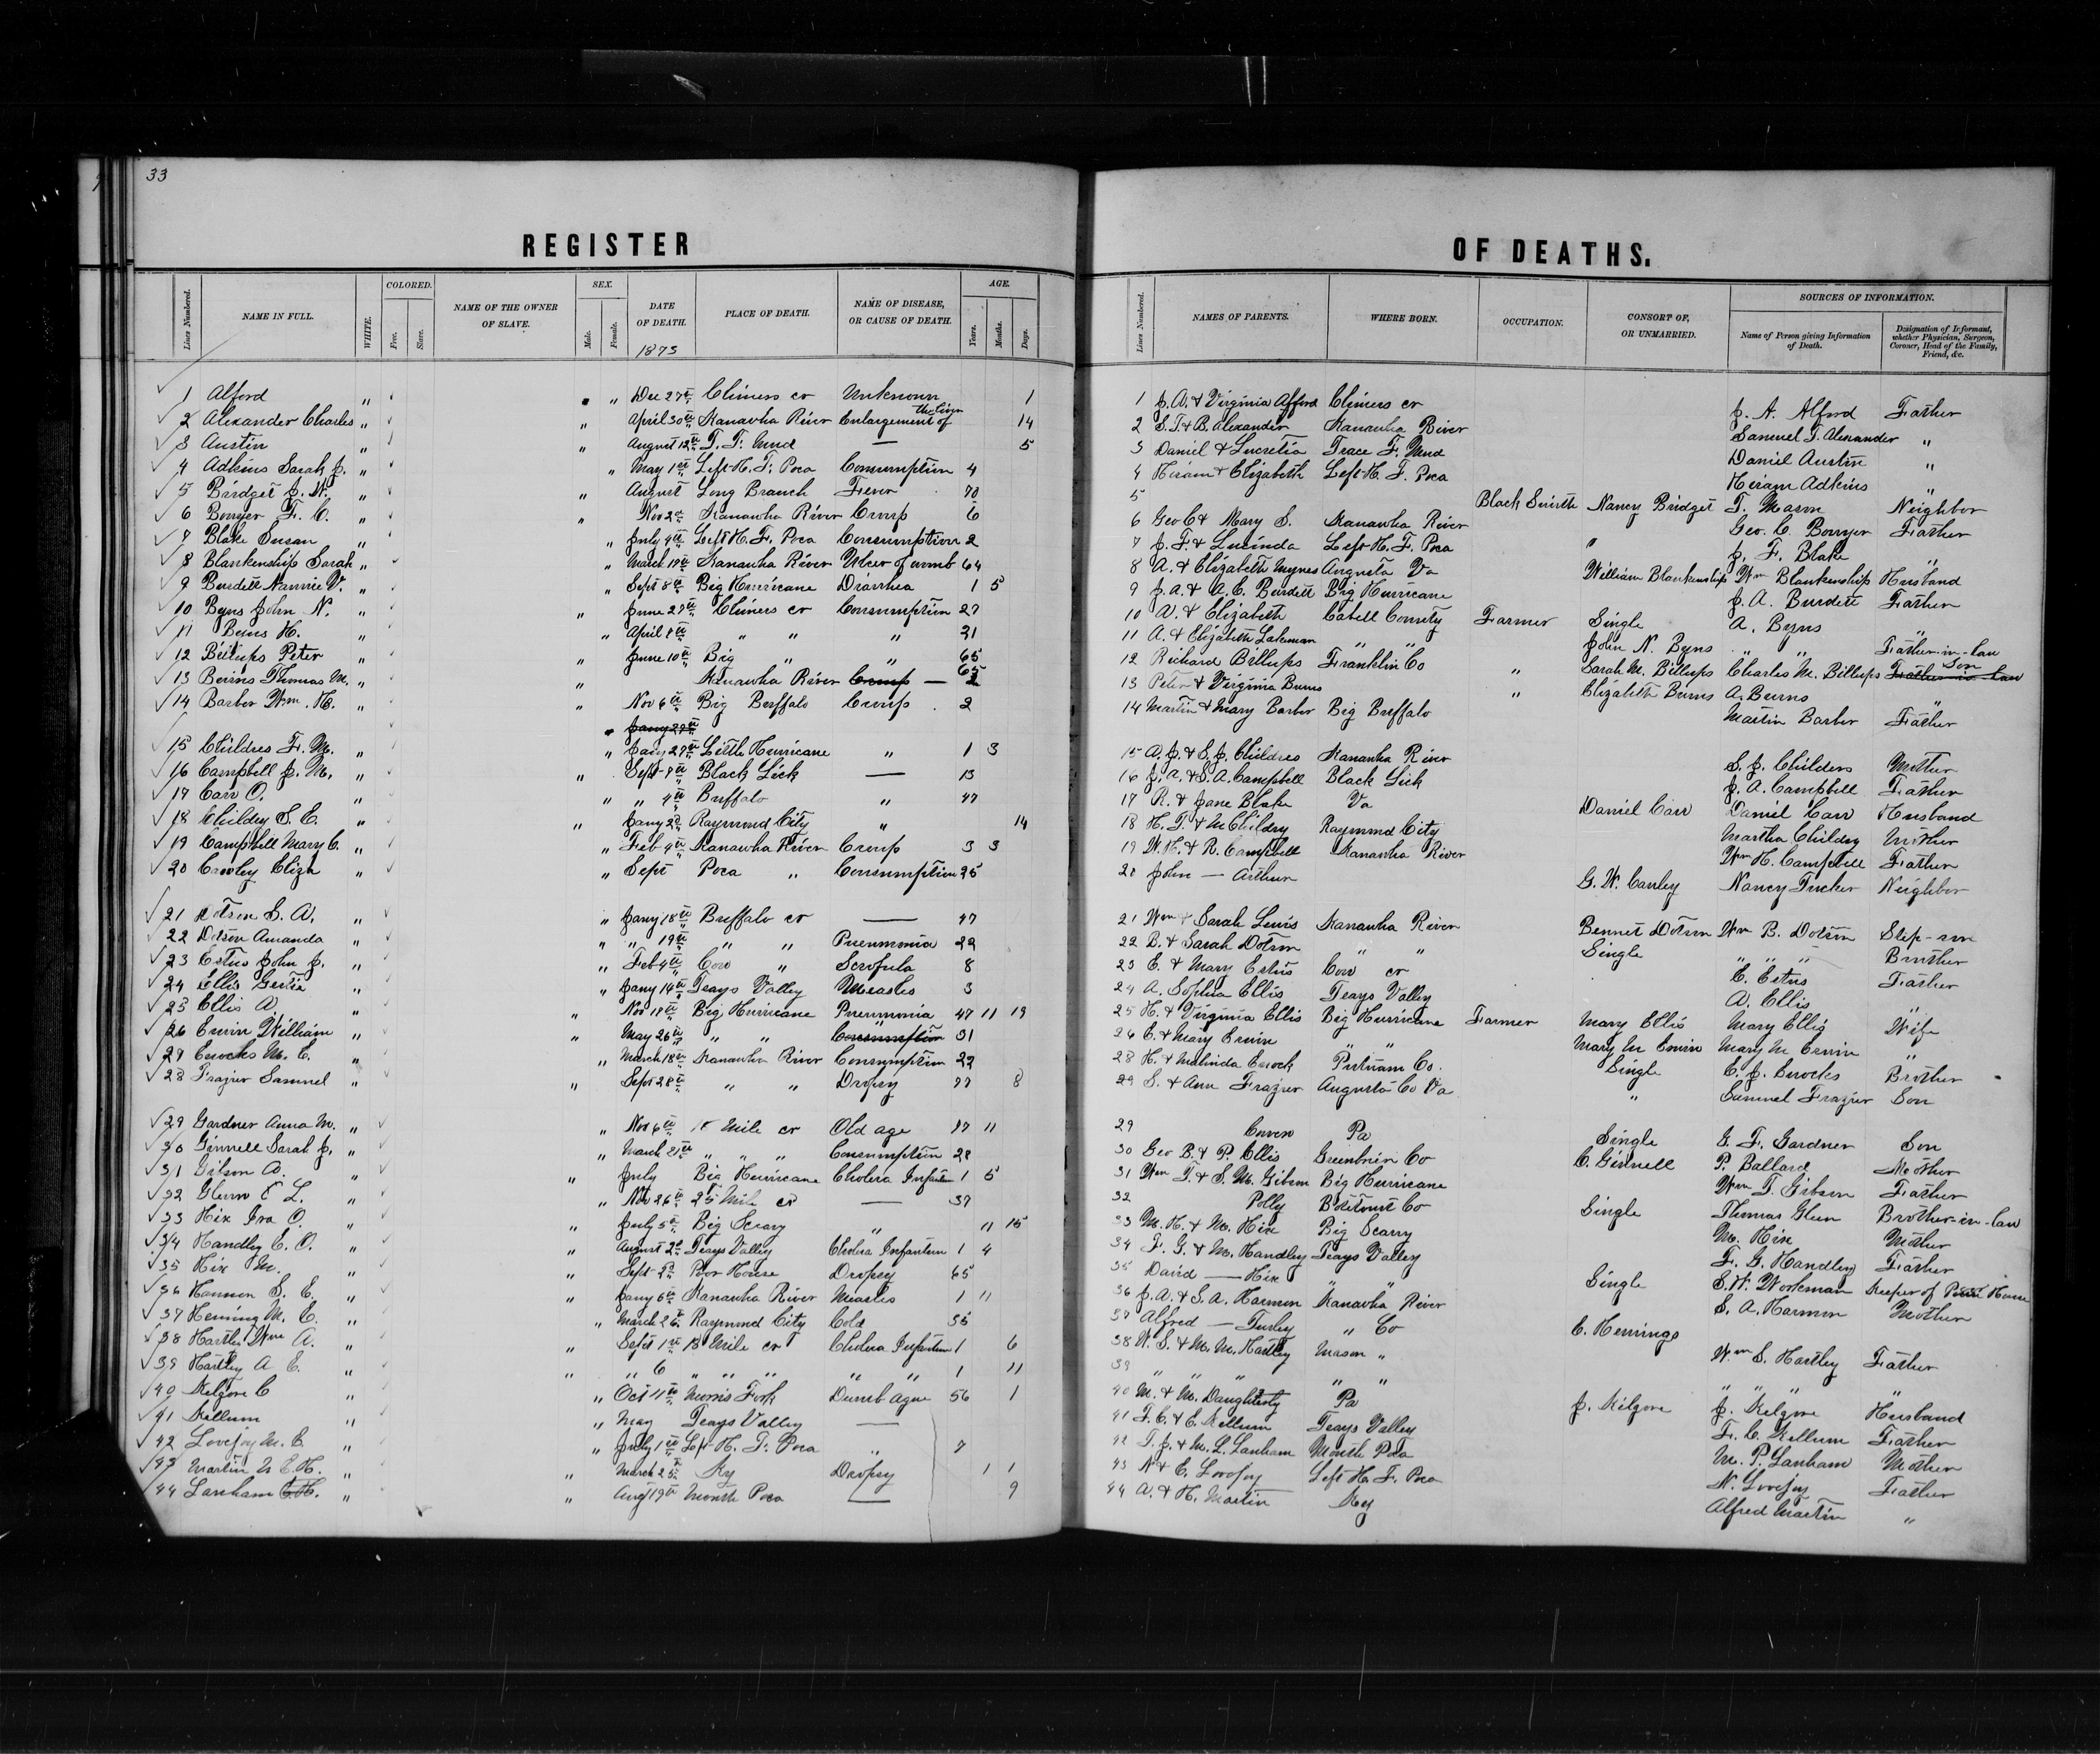 33
REGISTER OF DEATHS.
Lines Numbered. NAME IN FULL. WHITE. COLORED. Free. Slave. NAME OF THE OWNER OF SLAVE. SEX. Male. Female. DATE OF DEATH. 1873 PLACE OF DEATH. NAME OF DISEASE, OR CAUSE OF DEATH. AGE. Years. Months. Days.
1 Alford " " Dec 27th Climers cr Unknown 1
2 Alexander Charles " " April 30th Kanawha River Enlargement of the liver 14
3 Austin " " August 12th T. F. Mud — 5
4 Adkins Sarah J. " " May 1st Left H. F. Poca Consumption 4
5 Bridget J. N. " " August Long Branch Fever 70
6 Bowyer F. C. " " Nov 2nd Kanawha River Croup 6
7 Blake Susan " " July 4th Left H. F. Poca Consumption 2
8 Blankenship Sarah " " March 19th Kanawha River Ulcer of womb 64
9 Burdett Nannie V. " " Sept 8th Big Hurricane Diarrhea 1 5
10 Byns John N. " " June 27th Climers cr Consumption 27
11 Byns H. " " April 8th " " " 21
12 Billups Peter " " June 10th Big " " 65
13 Burns Thomas M. " " Kanawha River Croup — 67
14 Barber Wm. H. " " Nov 6th Big Buffalo Croup 2
Jany 29th
15 Childres F. M. " " Jany 29th Little Hurricane " 1 3
16 Campbell J. M. " " Sept 9th Black Lick — 13
17 Carr O. " " " 4th Buffalo " 47
18 Childry S. C. " " Jany 2d Raymond City " 14
19 Campbell Mary C. " " Feb 4th Kanawha River Croup 3 3
20 Cawley Eliza " " Sept Poca " Consumption 25
21 Dotson S. A. " " Jany 18th Buffalo cr — 47
22 Dotson Amanda " " 19th " " Pneumonia 22
23 Estus John J. " " Feb 4th Cow " Scrofula 8
24 Ellis Gertia " " Jany 14th Teays Valley Measles 3
25 Ellis A. " " Nov 18th Big Hurricane Pneumonia 47 11 19
26 Erwin William " " May 26th " " Consumption 31
27 Enocks M. E. " " March 18th Kanawha River Consumption 22
28 Frazier Samuel " " Sept 28th " " Dropsy 77 8
29 Gardner Anna M. " " Nov 6th 18 Mile cr Old age 87 11
30 Ginnell Sarah J. " " March 21st " " " Consumption 28
31 Gibson A. " " July Big Hurricane Cholera Infantum 1 5
32 Glenn E L. " " Nov 26th 25 Mile cr — 37
33 Hix Ira O. " " July 5th Big Scary " 11 15
34 Handley E. O. " " August 2d Teays Valley Cholera Infantum 1 4
35 Hix M. " " Sept 2d Poor House Dropsy 65
36 Harmon S. E. " " Jany 5th Kanawha River Measles 1 11
37 Heming M. E. " " March 26 Raymond City Cold 35
38 Hartley Wm A. " " Sept 1st 18 Mile cr Cholera Infantum 1 6
39 Hartley A E. " " " 6 " " " " " 1 11
40 Kilgore C " " Oct 11th Morris Fork Dumb ague 56 1
41 Kellum " " May Teays Valley —
42 Lovejoy M. E. " " July 1st Left H. F. Poca " 7
43 Martin N E. H. " " March 25 Ky Dropsy 1 1
44 Lanham " " Aug 19th Mouth Poca — 9
Lines Numbered. NAMES OF PARENTS. WHERE BORN. OCCUPATION. CONSORT OF, OR UNMARRIED. SOURCES OF INFORMATION. Name of Person giving Information of Death. Designation of Informant, whether Physician, Surgeon, Coroner, Head of the Family, Friend, &c.
1 J. A. & Virginia Alford Climers cr J. A. Alford Father
2 S. T. & B. Alexander Kanawha River Samuel T. Alexander "
3 Daniel & Lucretia Trace F. Mud Daniel Austin "
4 Hiram & Elizabeth Left H. F. Poca Heram Adkins "
5 Black Smith Nancy Bridget T. Mason Neighbor
6 Geo C & Mary S. Kanawha River Geo. C. Bowyer Father
7 J. F. & Lucinda Left H. F. Poca " J. F. Blake "
8 A. & Elizabeth Mynes Augusta Va William Blankenship Wm Blankenship Husband
9 J. A. & A. C. Burdett Big Hurricane J. A. Burdett Father
10 A. & Elizabeth Cabell County Farmer Single A. Byns "
11 A. & Elizabeth Lakeman " " John N. Byns " " Father-in-law
12 Richard Billups Franklin Co " Sarah M. Billups Charles M. Billups Father-in-law Son
13 Peter & Virginia Burns " Elizabeth Burns A. Burns "
14 Martin & Mary Barber Big Buffalo Martin Barber Father
15 A. J. & S. J. Childres Kanawha River S. J. Childers Mother
16 J. A. & S. A. Campbell Black Lick J. A. Campbell Father
17 R. & Jane Blake Va Daniel Carr Daniel Carr Husband
18 H. T. & M Childry Raymond City Martha Childry Mother
19 W. H. & R. Campbell Kanawha River Wm H. Campbell Father
20 John — Arthur G. W. Cauley Nancy Tucker Neighbor
21 Wm & Sarah Lewis Kanawha River Bennet Dotson Wm B. Dotson Step-son
22 B. & Sarah Dotson " " Single " " " Brother
23 E. & Mary Estus Cow cr E. Estus Father
24 A. Sophia Ellis Teays Valley A. Ellis "
25 H. & Virginia Ellis Big Hurricane Farmer Mary Ellis Mary Ellis Wife
26 E. & Mary Erwin " " Mary M Erwin Mary M Erwin "
28 H. & Malinda Enock Putnam Co. Single C. J. Enocks Brother
29 S. & Ann Frazier Augusta Co Va " Samuel Frazier Son
29 Coven Pa Single G. F. Gardner Son
30 Geo B. & P. Ellis Greenbrier Co C. Ginnell P. Ballard Mother
31 Wm T. & S. M. Gibson Big Hurricane Wm T. Gibson Father
32 Polly Botetourt Co Single Thomas Glen Brother-in-law
33 M. H. & M. Hix Big Scarry M. Hix Mother
34 F. G. & M. Handley Teays Valley F. G. Handley Father
35 David — Hix " " Single S. W. Workman Keeper of Poor House
36 J. A. & S. A. Harmon Kanawha River S. A. Harmon Mother
37 Alfred — Turley " Co C. Hemings
38 W. S. & M. M. Hartley Mason " Wm S. Hartley Father
39 " " " " " " " "
40 M. & M. Daugherty Pa J. Kilgore J. Kilgore Husband
41 F. C. & E. Kellum Teays Valley F. C. Kellum Father
42 T. J. & M. L. Lanham Mouth Poca M. P. Lanham Mother
43 N & E. Lovejoy Left H. F. Poca N. Lovejoy Father
44 A. & H. Martin Key Alfred Martin "